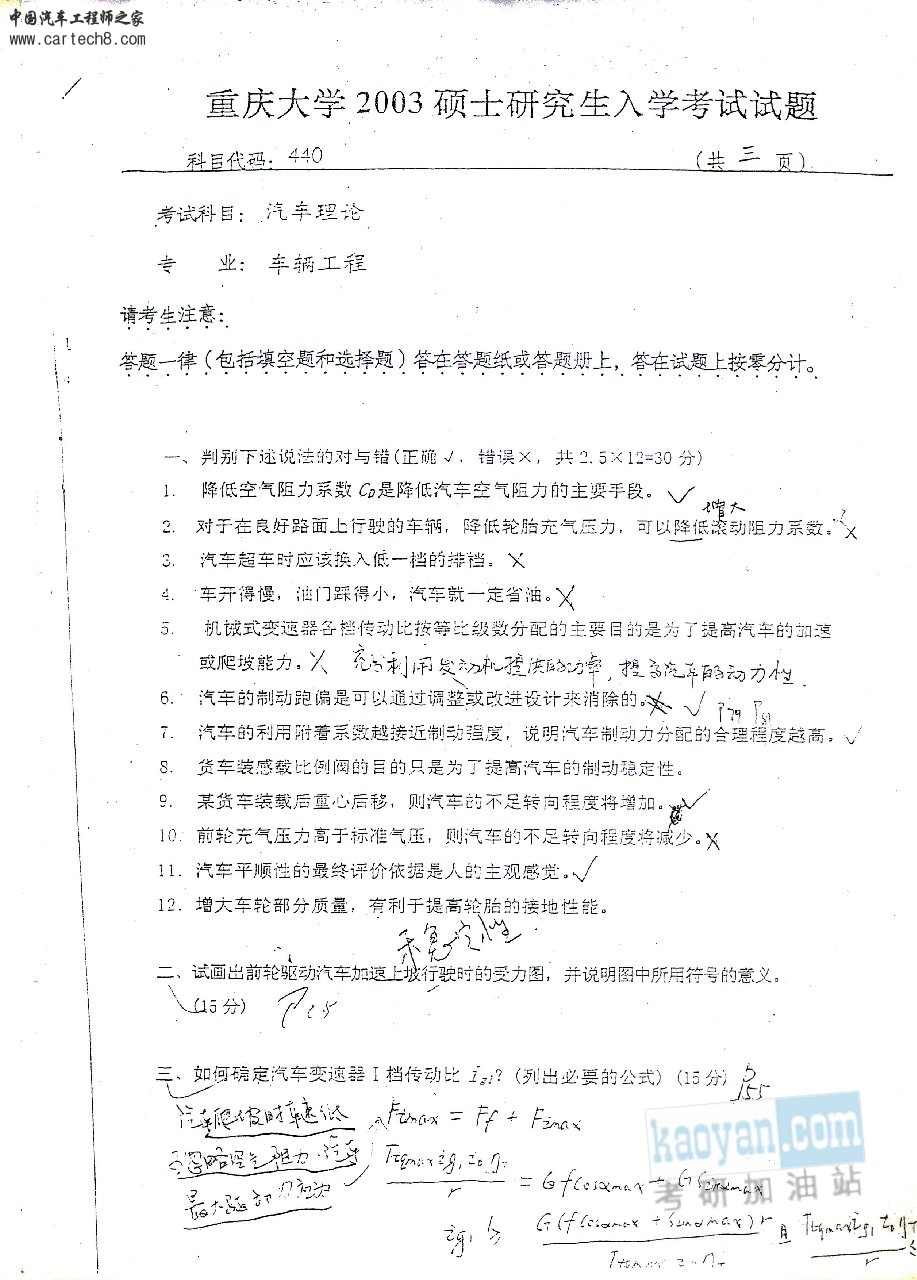 中国汽车工程师之家
www.cartech8.com
重庆大学 2003 硕士研究生入学考试试题
科目代码: 440
(共 三 页)
考试科目: 汽车理论
专 业: 车辆工程
请考生注意:
答题一律(包括填空题和选择题)答在答题纸或答题册上,答在试题上按零分计。
一、判别下述说法的对与错(正确√, 错误×, 共 2.5×12=30 分)
1. 降低空气阻力系数 CD是降低汽车空气阻力的主要手段。√
增大
2. 对于在良好路面上行驶的车辆, 降低轮胎充气压力, 可以降低滚动阻力系数。×
3. 汽车超车时应该换入低一档的排档。×
4. 车开得慢, 油门踩得小, 汽车就一定省油。×
5. 机械式变速器各档传动比按等比级数分配的主要目的是为了提高汽车的加速
或爬坡能力。× 充分利用发动机提供的功率, 提高汽车的动力性.
6. 汽车的制动跑偏是可以通过调整或改进设计来消除的。√ P79 P81
7. 汽车的利用附着系数越接近制动强度, 说明汽车制动力分配的合理程度越高。√
8. 货车装感载比例阀的目的只是为了提高汽车的制动稳定性。
9. 某货车装载后重心后移, 则汽车的不足转向程度将增加。√
10. 前轮充气压力高于标准气压, 则汽车的不足转向程度将减少。×
11. 汽车平顺性的最终评价依据是人的主观感觉。√
12. 增大车轮部分质量, 有利于提高轮胎的接地性能。
二、试画出前轮驱动汽车加速上坡行驶时的受力图, 并说明图中所用符号的意义。
(15 分)
三、如何确定汽车变速器 I 档传动比 ig1? (列出必要的公式) (15 分) P155
汽车爬坡时车速低 Ftmax = Ff + Fimax
可忽略空气阻力, 汽车
最大驱动力应为
Ttqmax ig1 i0 ηT / r = G f cosαmax + G sinαmax
ig1 ≥ G(f cosαmax + sinαmax) r / Ttqmax i0 ηT 且 Ttqmax ig1 i0 ηT / r ≤
kaoyan.com
考研加油站